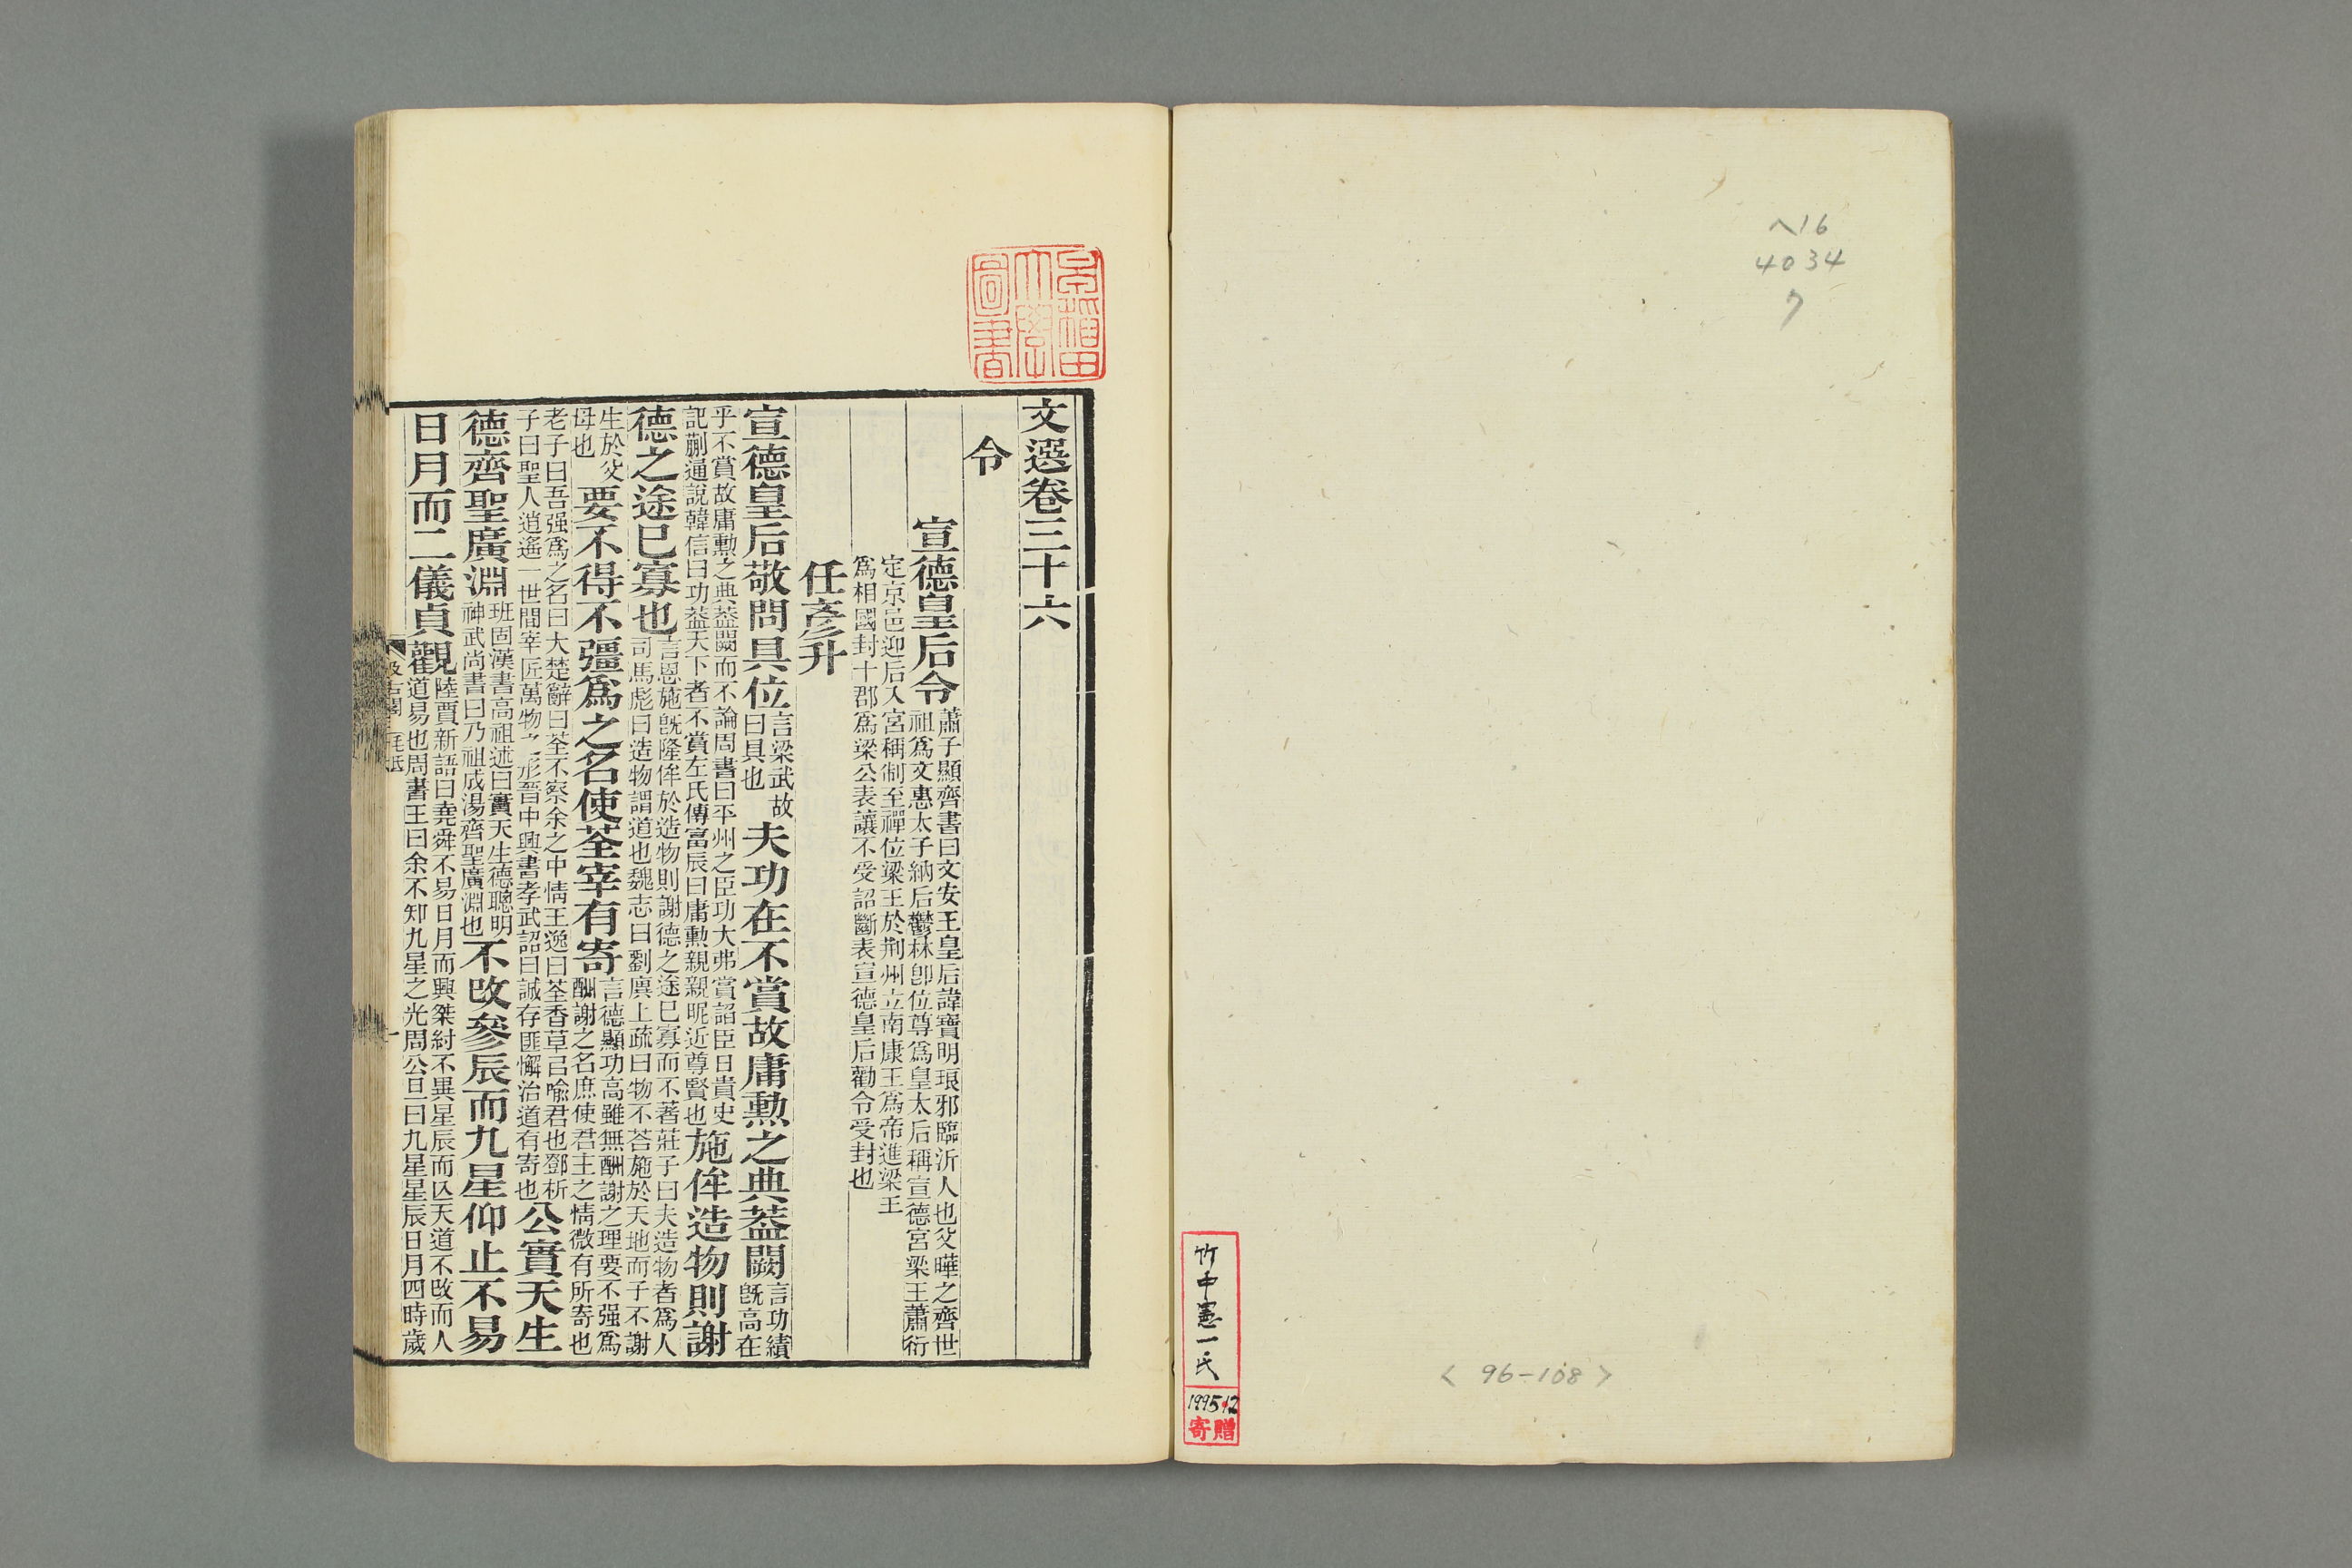 ヘ16
4034
7
<96-108>
竹中憲一氏
1995.12
寄贈
早稲田
大學
圖書
文選卷三十六
令
宣德皇后令
蕭子顯齊書曰文安王皇后諱寶明琅邪臨沂人也父曄之齊世
祖爲文惠太子納后鬱林卽位尊爲皇太后稱宣德宮梁王蕭衍
定京邑迎后入宮稱制至禪位梁王於荆州立南康王爲帝進梁王
爲相國封十郡爲梁公表讓不受詔斷表宣德皇后勸令受封也
任彥升
宣德皇后敬問具位
言梁武故
曰具也
夫功在不賞故庸勳之典葢闕
言功績
旣高在
乎不賞故庸勳之典葢闕而不論周書曰平州之臣功大弗賞諂臣日貴史
記蒯通說韓信曰功葢天下者不賞左氏傳富辰曰庸勳親親昵近尊賢也
施侔造物則謝
德之途已寡也
言恩施旣隆侔於造物則謝德之途已寡而不著莊子曰夫造物者爲人
司馬彪曰造物謂道也魏志曰劉廙上疏曰物不荅施於天地而子不謝
生於父
母也
要不得不彊爲之名使荃宰有寄
言德顯功高雖無酬謝之理要不强爲
酬謝之名庶使君主之情微有所寄也
老子曰吾强爲之名曰大楚辭曰荃不察余之中情王逸曰荃香草㠯喻君也鄧析
子曰聖人逍遙一世間宰匠萬物之形晉中興書孝武詔曰誠存匪懈治道有寄也
公實天生
德齊聖廣淵
班固漢書高祖述曰實天生德聰明
神武尚書曰乃祖成湯齊聖廣淵也
不改參辰而九星仰止不易
日月而二儀貞觀
陸賈新語曰堯舜不易日月而興桀紂不異星辰而亾天道不改而人
道易也周書王曰余不知九星之光周公旦曰九星星辰日月四時歲